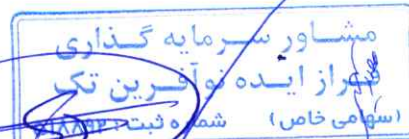 مشاور سرمایه گذاری
فراز ایده نوآفرین تک
(سهامی خاص) شماره ثبت: